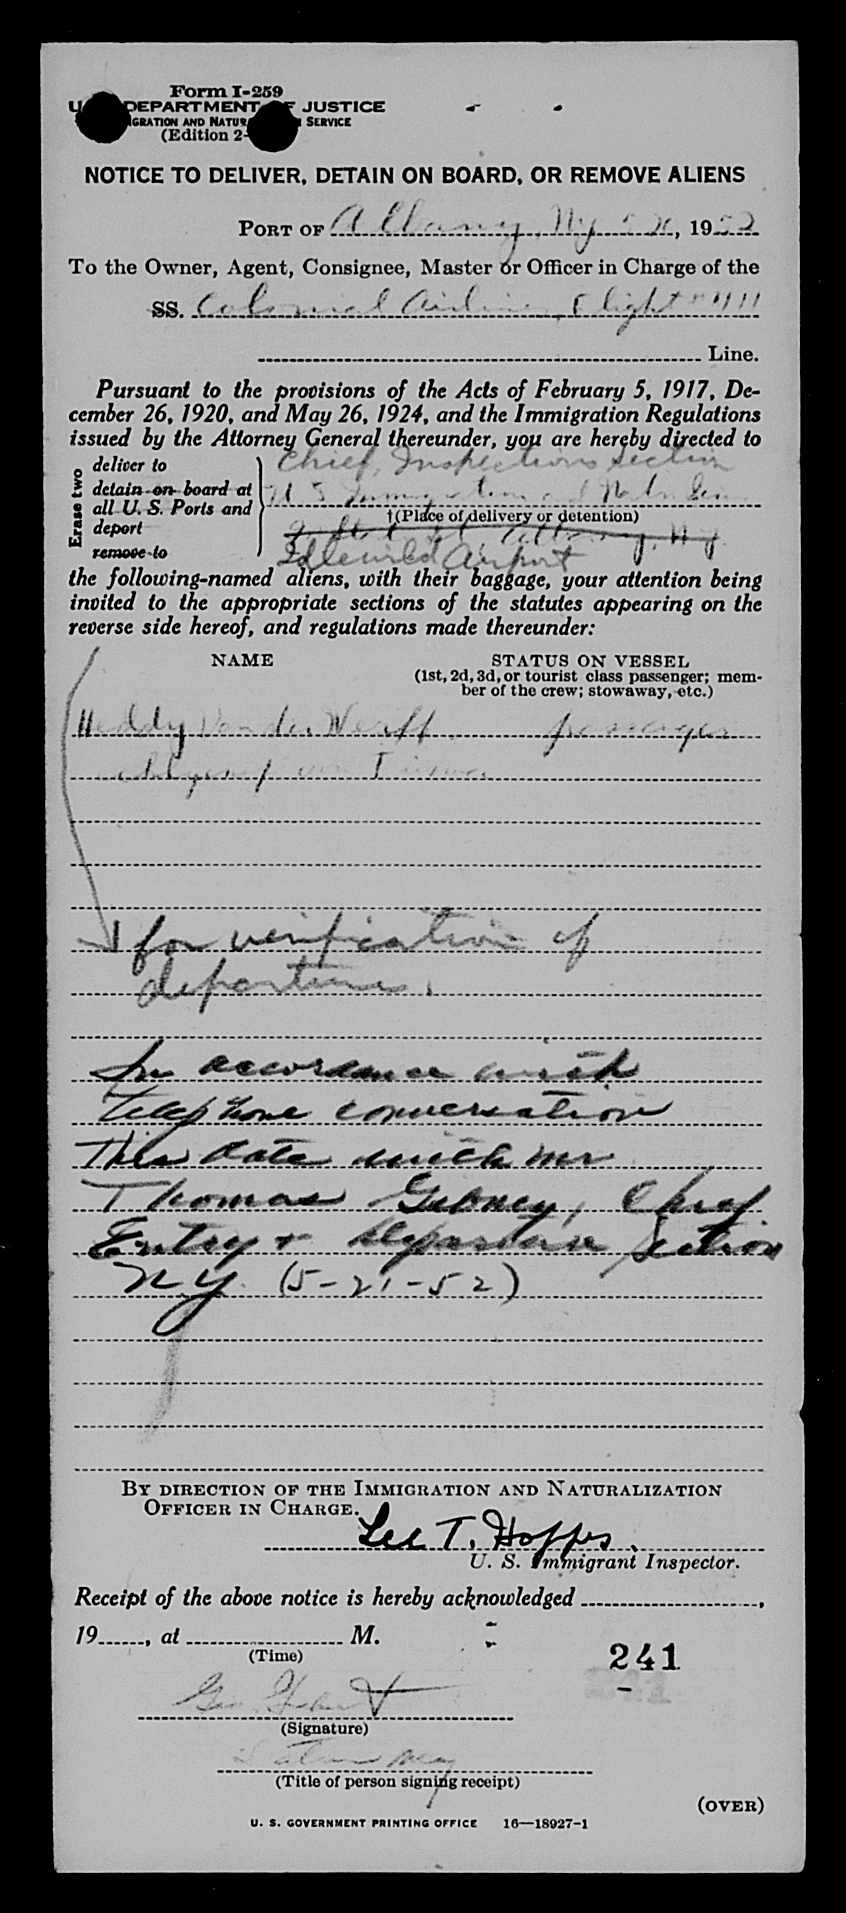 Form I-259
DEPARTMENT OF JUSTICE
IMMIGRATION AND NATURALIZATION SERVICE
(Edition 2-
NOTICE TO DELIVER, DETAIN ON BOARD, OR REMOVE ALIENS
PORT OF Albany, Ny 5 21, 1952
To the Owner, Agent, Consignee, Master or Officer in Charge of the
SS. Colonial Airlines, Flight #411
Line.
Pursuant to the provisions of the Acts of February 5, 1917, De-
cember 26, 1920, and May 26, 1924, and the Immigration Regulations
issued by the Attorney General thereunder, you are hereby directed to
Erase two
deliver to
detain on board at
all U. S. Ports and
deport
remove to
Chief, Inspections Section
U S Immigration and
†(Place of delivery or detention)
Albany, N.Y.
Idlewild Airport
the following-named aliens, with their baggage, your attention being
invited to the appropriate sections of the statutes appearing on the
reverse side hereof, and regulations made thereunder:
NAME
STATUS ON VESSEL
(1st, 2d, 3d, or tourist class passenger; mem-
ber of the crew; stowaway, etc.)
Heddy Van der Werff passenger
for verification of
departure.
In accordance with
telephone conversation
this date with Mr
Thomas Gibney, Chief
Entry + Departure Section
NY. (5-21-52)
BY DIRECTION OF THE IMMIGRATION AND NATURALIZATION
OFFICER IN CHARGE.
Lee T. Hoppes.
U. S. Immigrant Inspector.
Receipt of the above notice is hereby acknowledged ,
19 , at M.
(Time)
241
Geo.
(Signature)
Station Mgr
(Title of person signing receipt)
(OVER)
U. S. GOVERNMENT PRINTING OFFICE 16—18927-1